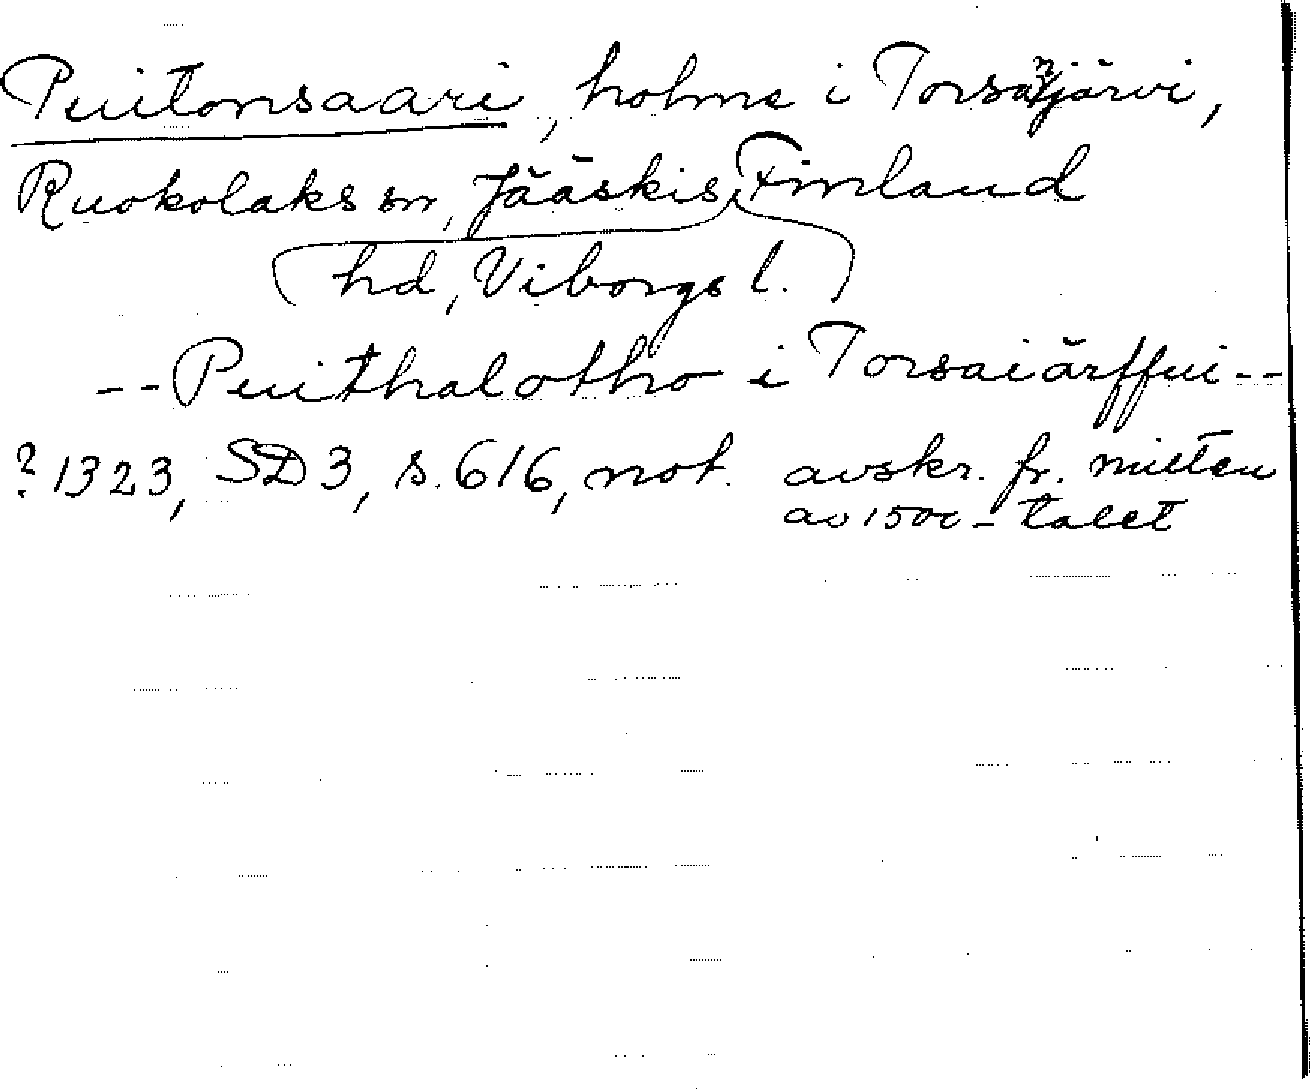 Puitonsaari, holme i Torsanjärvi,
Ruokolaks sn, Jääskis Finland
hd, Viborgs l.
-- Puithalotho i Torsaiärffui --
? 1323, SD 3, s. 616, not. avskr. fr. mitten
av 1500-talet